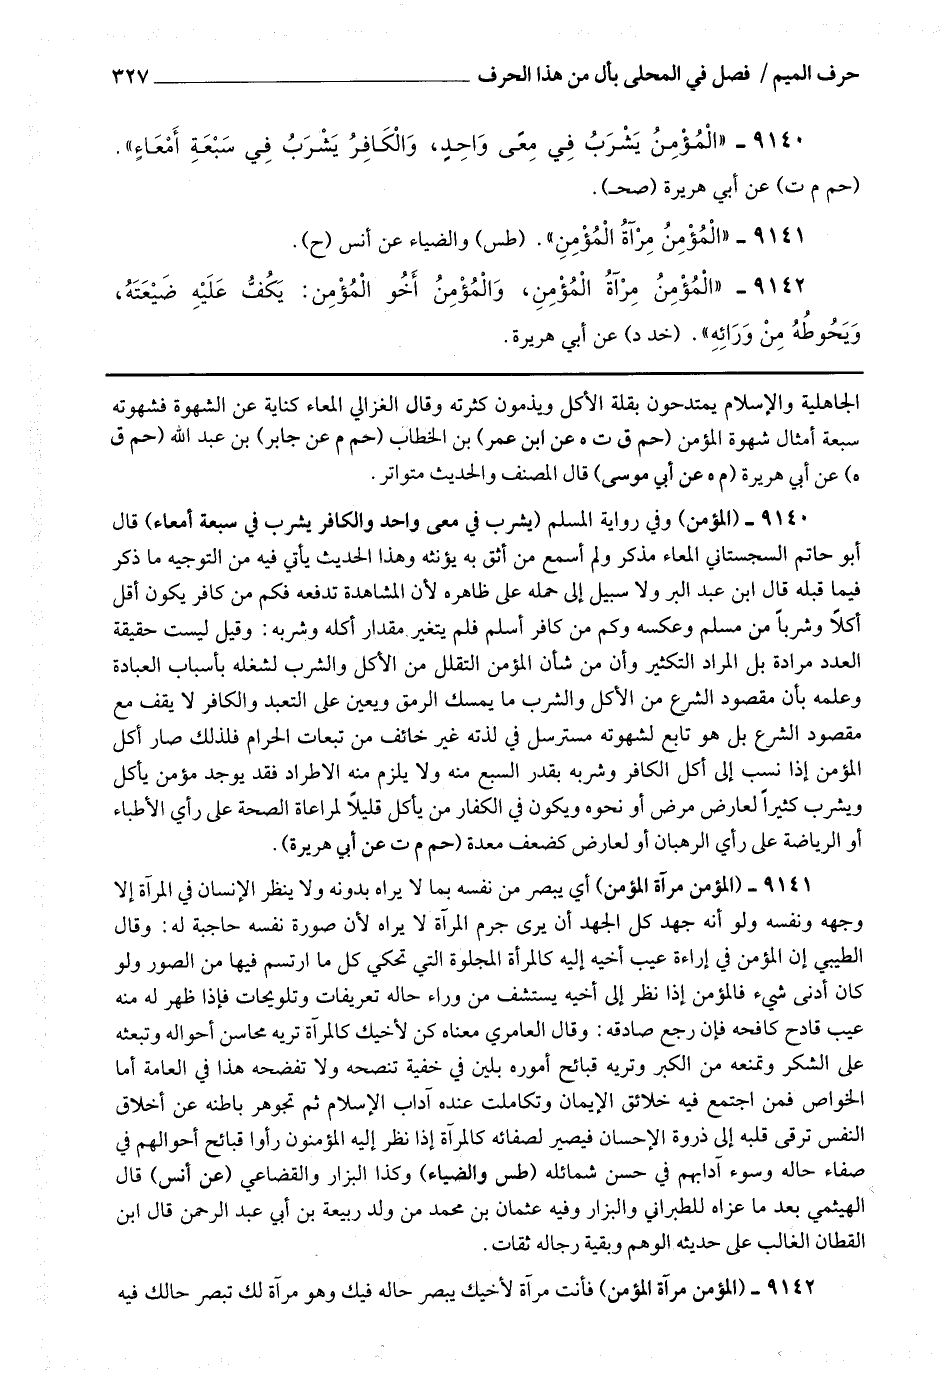 حرف الميم / فصل في المحلى بأل من هذا الحرف ٣٢٧
٩١٤٠ ـ «الْمُؤْمِنُ يَشْرَبُ فِي مِعًى وَاحِدٍ، وَالْكَافِرُ يَشْرَبُ فِي سَبْعَةِ أَمْعَاءٍ».
(حم م ت) عن أبي هريرة (صحـ).
٩١٤١ ـ «الْمُؤْمِنُ مِرْآةُ الْمُؤْمِنِ». (طس) والضياء عن أنس (ح).
٩١٤٢ ـ «الْمُؤْمِنُ مِرْآةُ الْمُؤْمِنِ، وَالْمُؤْمِنُ أَخُو الْمُؤْمِنِ: يَكُفُّ عَلَيْهِ ضَيْعَتَهُ،
وَيَحُوطُهُ مِنْ وَرَائِهِ». (خد د) عن أبي هريرة.
الجاهلية والإسلام يمتدحون بقلة الأكل ويذمون كثرته وقال الغزالي المعاء كناية عن الشهوة فشهوته
سبعة أمثال شهوة المؤمن (حم ق ت ه عن ابن عمر) بن الخطاب (حم م عن جابر) بن عبد الله (حم ق
ه) عن أبي هريرة (م ه عن أبي موسى) قال المصنف والحديث متواتر.
٩١٤٠ ـ (المؤمن) وفي رواية المسلم (يشرب في معى واحد والكافر يشرب في سبعة أمعاء) قال
أبو حاتم السجستاني المعاء مذكر ولم أسمع من أثق به يؤنثه وهذا الحديث يأتي فيه من التوجيه ما ذكر
فيما قبله قال ابن عبد البر ولا سبيل إلى حمله على ظاهره لأن المشاهدة تدفعه فكم من كافر يكون أقل
أكلاً وشرباً من مسلم وعكسه وكم من كافر أسلم فلم يتغير مقدار أكله وشربه: وقيل ليست حقيقة
العدد مرادة بل المراد التكثير وأن من شأن المؤمن التقلل من الأكل والشرب لشغله بأسباب العبادة
وعلمه بأن مقصود الشرع من الأكل والشرب ما يمسك الرمق ويعين على التعبد والكافر لا يقف مع
مقصود الشرع بل هو تابع لشهوته مسترسل في لذته غير خائف من تبعات الحرام فلذلك صار أكل
المؤمن إذا نسب إلى أكل الكافر وشربه بقدر السبع منه ولا يلزم منه الاطراد فقد يوجد مؤمن يأكل
ويشرب كثيراً لعارض مرض أو نحوه ويكون في الكفار من يأكل قليلاً لمراعاة الصحة على رأي الأطباء
أو الرياضة على رأي الرهبان أو لعارض كضعف معدة (حم م ت عن أبي هريرة).
٩١٤١ ـ (المؤمن مرآة المؤمن) أي يبصر من نفسه بما لا يراه بدونه ولا ينظر الإنسان في المرآة إلا
وجهه ونفسه ولو أنه جهد كل الجهد أن يرى جرم المرآة لا يراه لأن صورة نفسه حاجبة له: وقال
الطيبي إن المؤمن في إراءة عيب أخيه إليه كالمرأة المجلوة التي تحكي كل ما ارتسم فيها من الصور ولو
كان أدنى شيء فالمؤمن إذا نظر إلى أخيه يستشف من وراء حاله تعريفات وتلويحات فإذا ظهر له منه
عيب قادح كافحه فإن رجع صادقه: وقال العامري معناه كن لأخيك كالمرآة تريه محاسن أحواله وتبعثه
على الشكر وتمنعه من الكبر وتريه قبائح أموره بلين في خفية تنصحه ولا تفضحه هذا في العامة أما
الخواص فمن اجتمع فيه خلائق الإيمان وتكاملت عنده آداب الإسلام ثم تجوهر باطنه عن أخلاق
النفس ترقى قلبه إلى ذروة الإحسان فيصير لصفائه كالمرآة إذا نظر إليه المؤمنون رأوا قبائح أحوالهم في
صفاء حاله وسوء آدابهم في حسن شمائله (طس والضياء) وكذا البزار والقضاعي (عن أنس) قال
الهيثمي بعد ما عزاه للطبراني والبزار وفيه عثمان بن محمد من ولد ربيعة بن أبي عبد الرحمن قال ابن
القطان الغالب على حديثه الوهم وبقية رجاله ثقات.
٩١٤٢ ـ (المؤمن مرآة المؤمن) فأنت مرآة لأخيك يبصر حاله فيك وهو مرآة لك تبصر حالك فيه